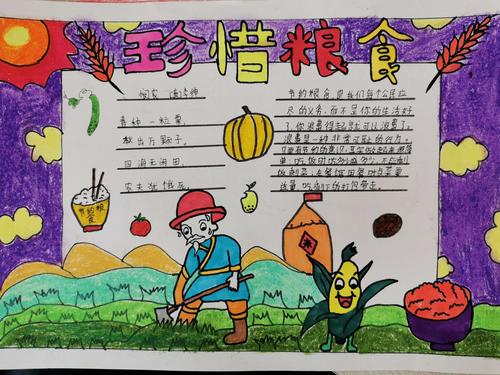 珍惜粮食
悯农 唐 李绅
春种一粒粟,
秋收万颗子。
四海无闲田,
农夫犹饿死。
节约粮食,是我们每个公民应
尽的义务,而不是你的生活好
了,你浪费得起就可以浪费了。
浪费是一种非常可耻的行为。
只要有节约的意识,其实做起来很简单:
吃饭时吃多少盛多少,不
饭剩菜,在餐馆用餐时点菜要
适量,吃剩下的打包带走。
节约粮食
米